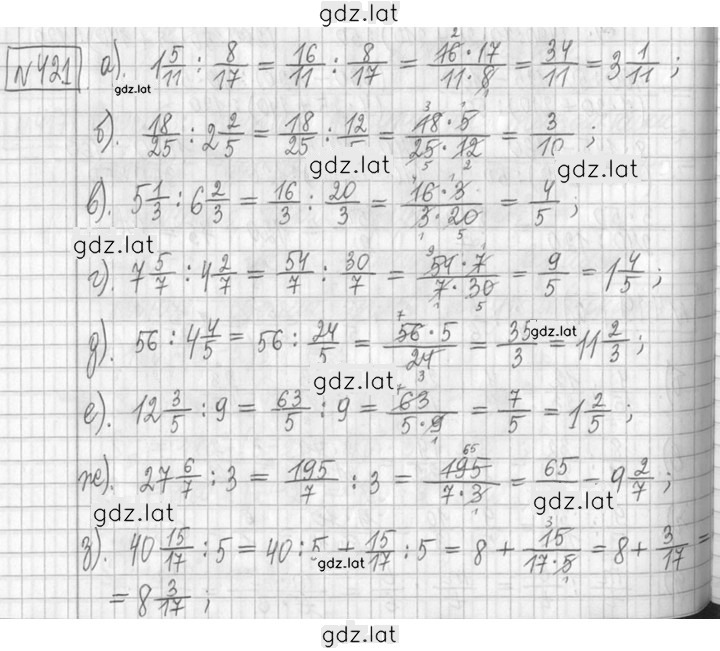 gdz.lat
№421 а). 1 5/11 : 8/17 = 16/11 : 8/17 = 16·17/11·8 = 34/11 = 3 1/11 ;
gdz.lat
б). 18/25 : 2 2/5 = 18/25 : 12/5 = 18·5/25·12 = 3/10 ;
gdz.lat gdz.lat
в). 5 1/3 : 6 2/3 = 16/3 : 20/3 = 16·3/3·20 = 4/5 ;
gdz.lat
г). 7 5/7 : 4 2/7 = 54/7 : 30/7 = 54·7/7·30 = 9/5 = 1 4/5 ;
д). 56 : 4 4/5 = 56 : 24/5 = 56·5/24 = 35/3 = 11 2/3 ;
gdz.lat
gdz.lat
е). 12 3/5 : 9 = 63/5 : 9 = 63/5·9 = 7/5 = 1 2/5 ;
ж). 27 6/7 : 3 = 195/7 : 3 = 195/7·3 = 65 = 9 2/7 ;
gdz.lat gdz.lat
з). 40 15/17 : 5 = 40 : 5 + 15/17 : 5 = 8 + 15/17·5 = 8 + 3/17 =
gdz.lat
= 8 3/17 ;
gdz.lat